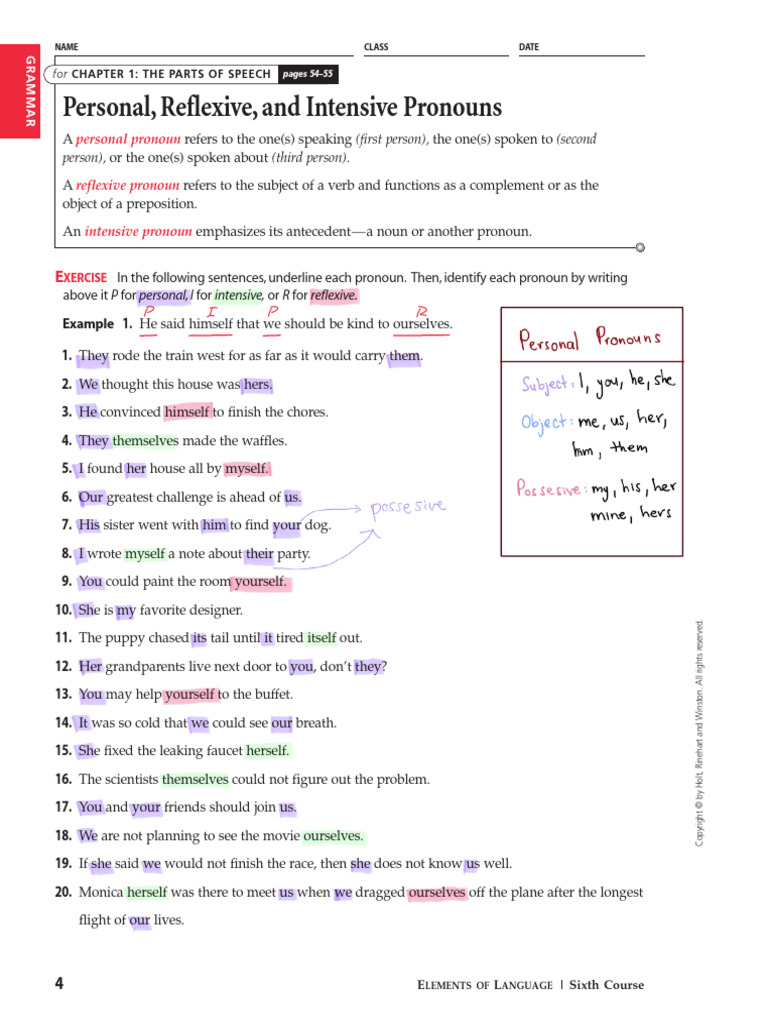 NAME CLASS DATE
GRAMMAR
for CHAPTER 1: THE PARTS OF SPEECH pages 54–55
Personal, Reflexive, and Intensive Pronouns
A personal pronoun refers to the one(s) speaking (first person), the one(s) spoken to (second
person), or the one(s) spoken about (third person).
A reflexive pronoun refers to the subject of a verb and functions as a complement or as the
object of a preposition.
An intensive pronoun emphasizes its antecedent—a noun or another pronoun.
EXERCISE In the following sentences, underline each pronoun. Then, identify each pronoun by writing
above it P for personal, I for intensive, or R for reflexive.
P I P R
Example 1. He said himself that we should be kind to ourselves.
1. They rode the train west for as far as it would carry them.
2. We thought this house was hers.
3. He convinced himself to finish the chores.
4. They themselves made the waffles.
5. I found her house all by myself.
6. Our greatest challenge is ahead of us.
7. His sister went with him to find your dog.
8. I wrote myself a note about their party.
9. You could paint the room yourself.
10. She is my favorite designer.
11. The puppy chased its tail until it tired itself out.
12. Her grandparents live next door to you, don't they?
13. You may help yourself to the buffet.
14. It was so cold that we could see our breath.
15. She fixed the leaking faucet herself.
16. The scientists themselves could not figure out the problem.
17. You and your friends should join us.
18. We are not planning to see the movie ourselves.
19. If she said we would not finish the race, then she does not know us well.
20. Monica herself was there to meet us when we dragged ourselves off the plane after the longest
flight of our lives.
possesive
Personal Pronouns
Subject: I, you, he, she
Object: me, us, her,
him, them
Possesive: my, his, her
mine, hers
Copyright © by Holt, Rinehart and Winston. All rights reserved.
4 ELEMENTS OF LANGUAGE | Sixth Course